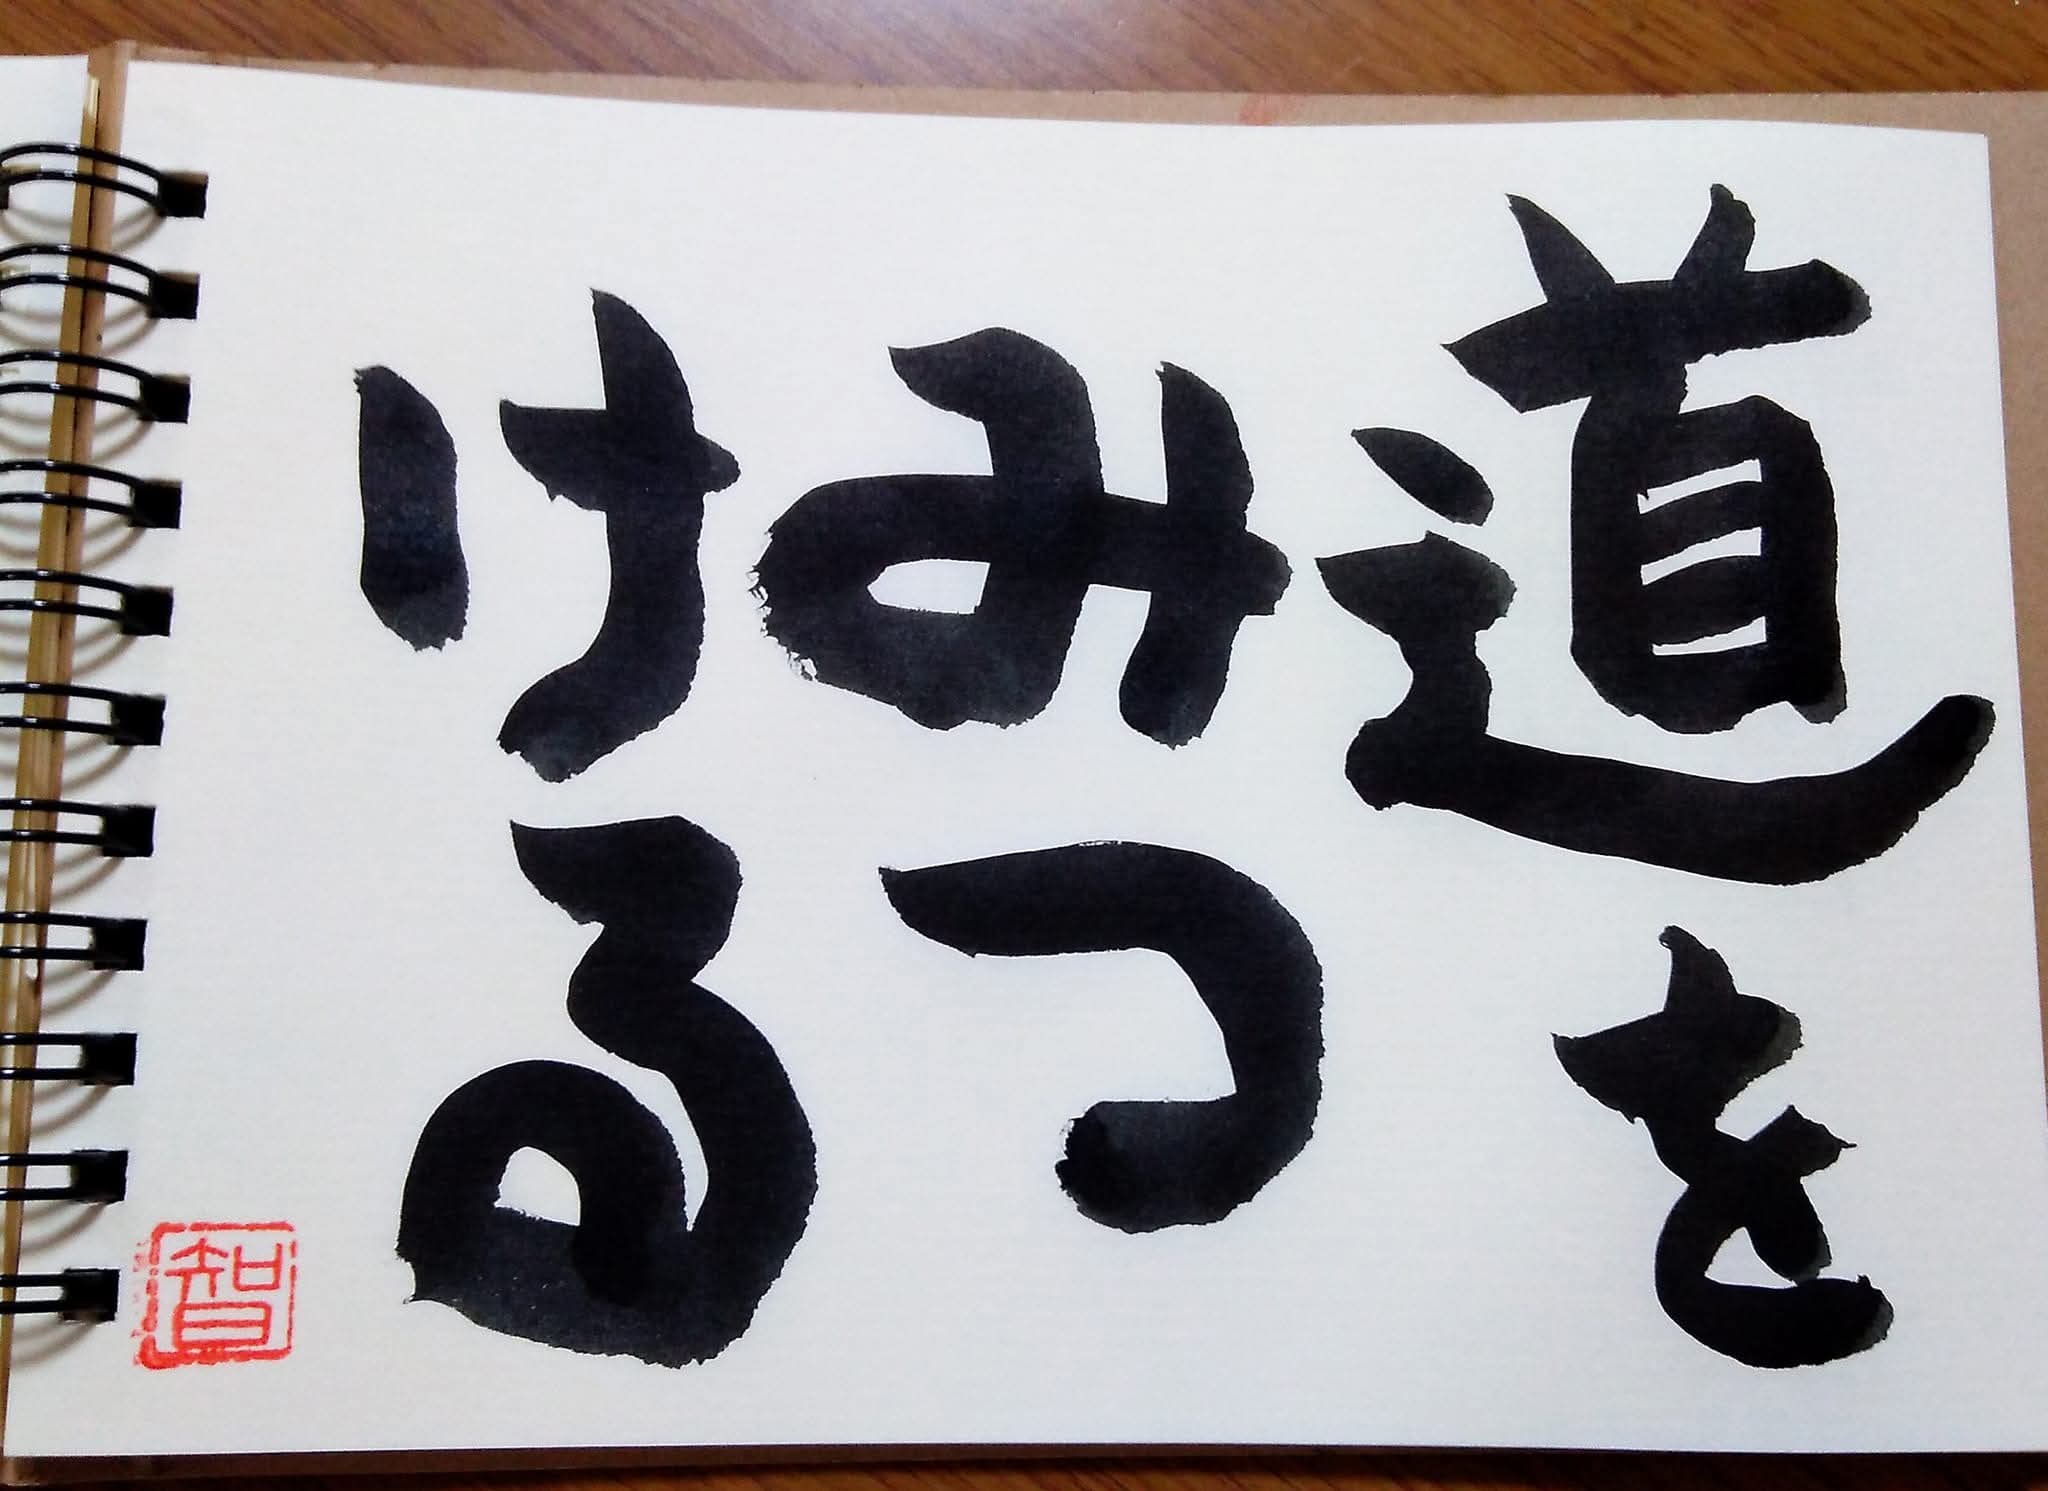 道を
みつ
ける
智